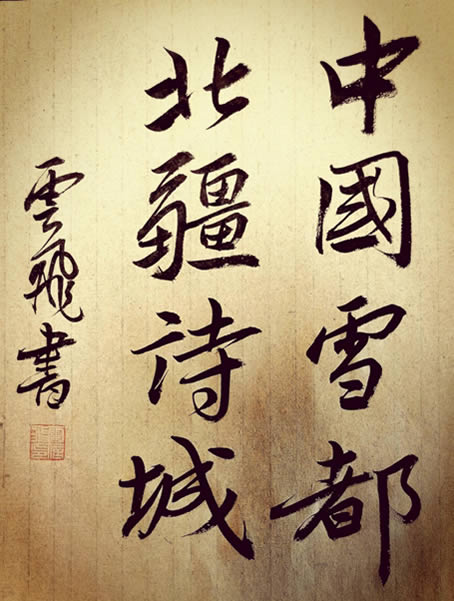 中國雪都
北疆诗城
雲飛書